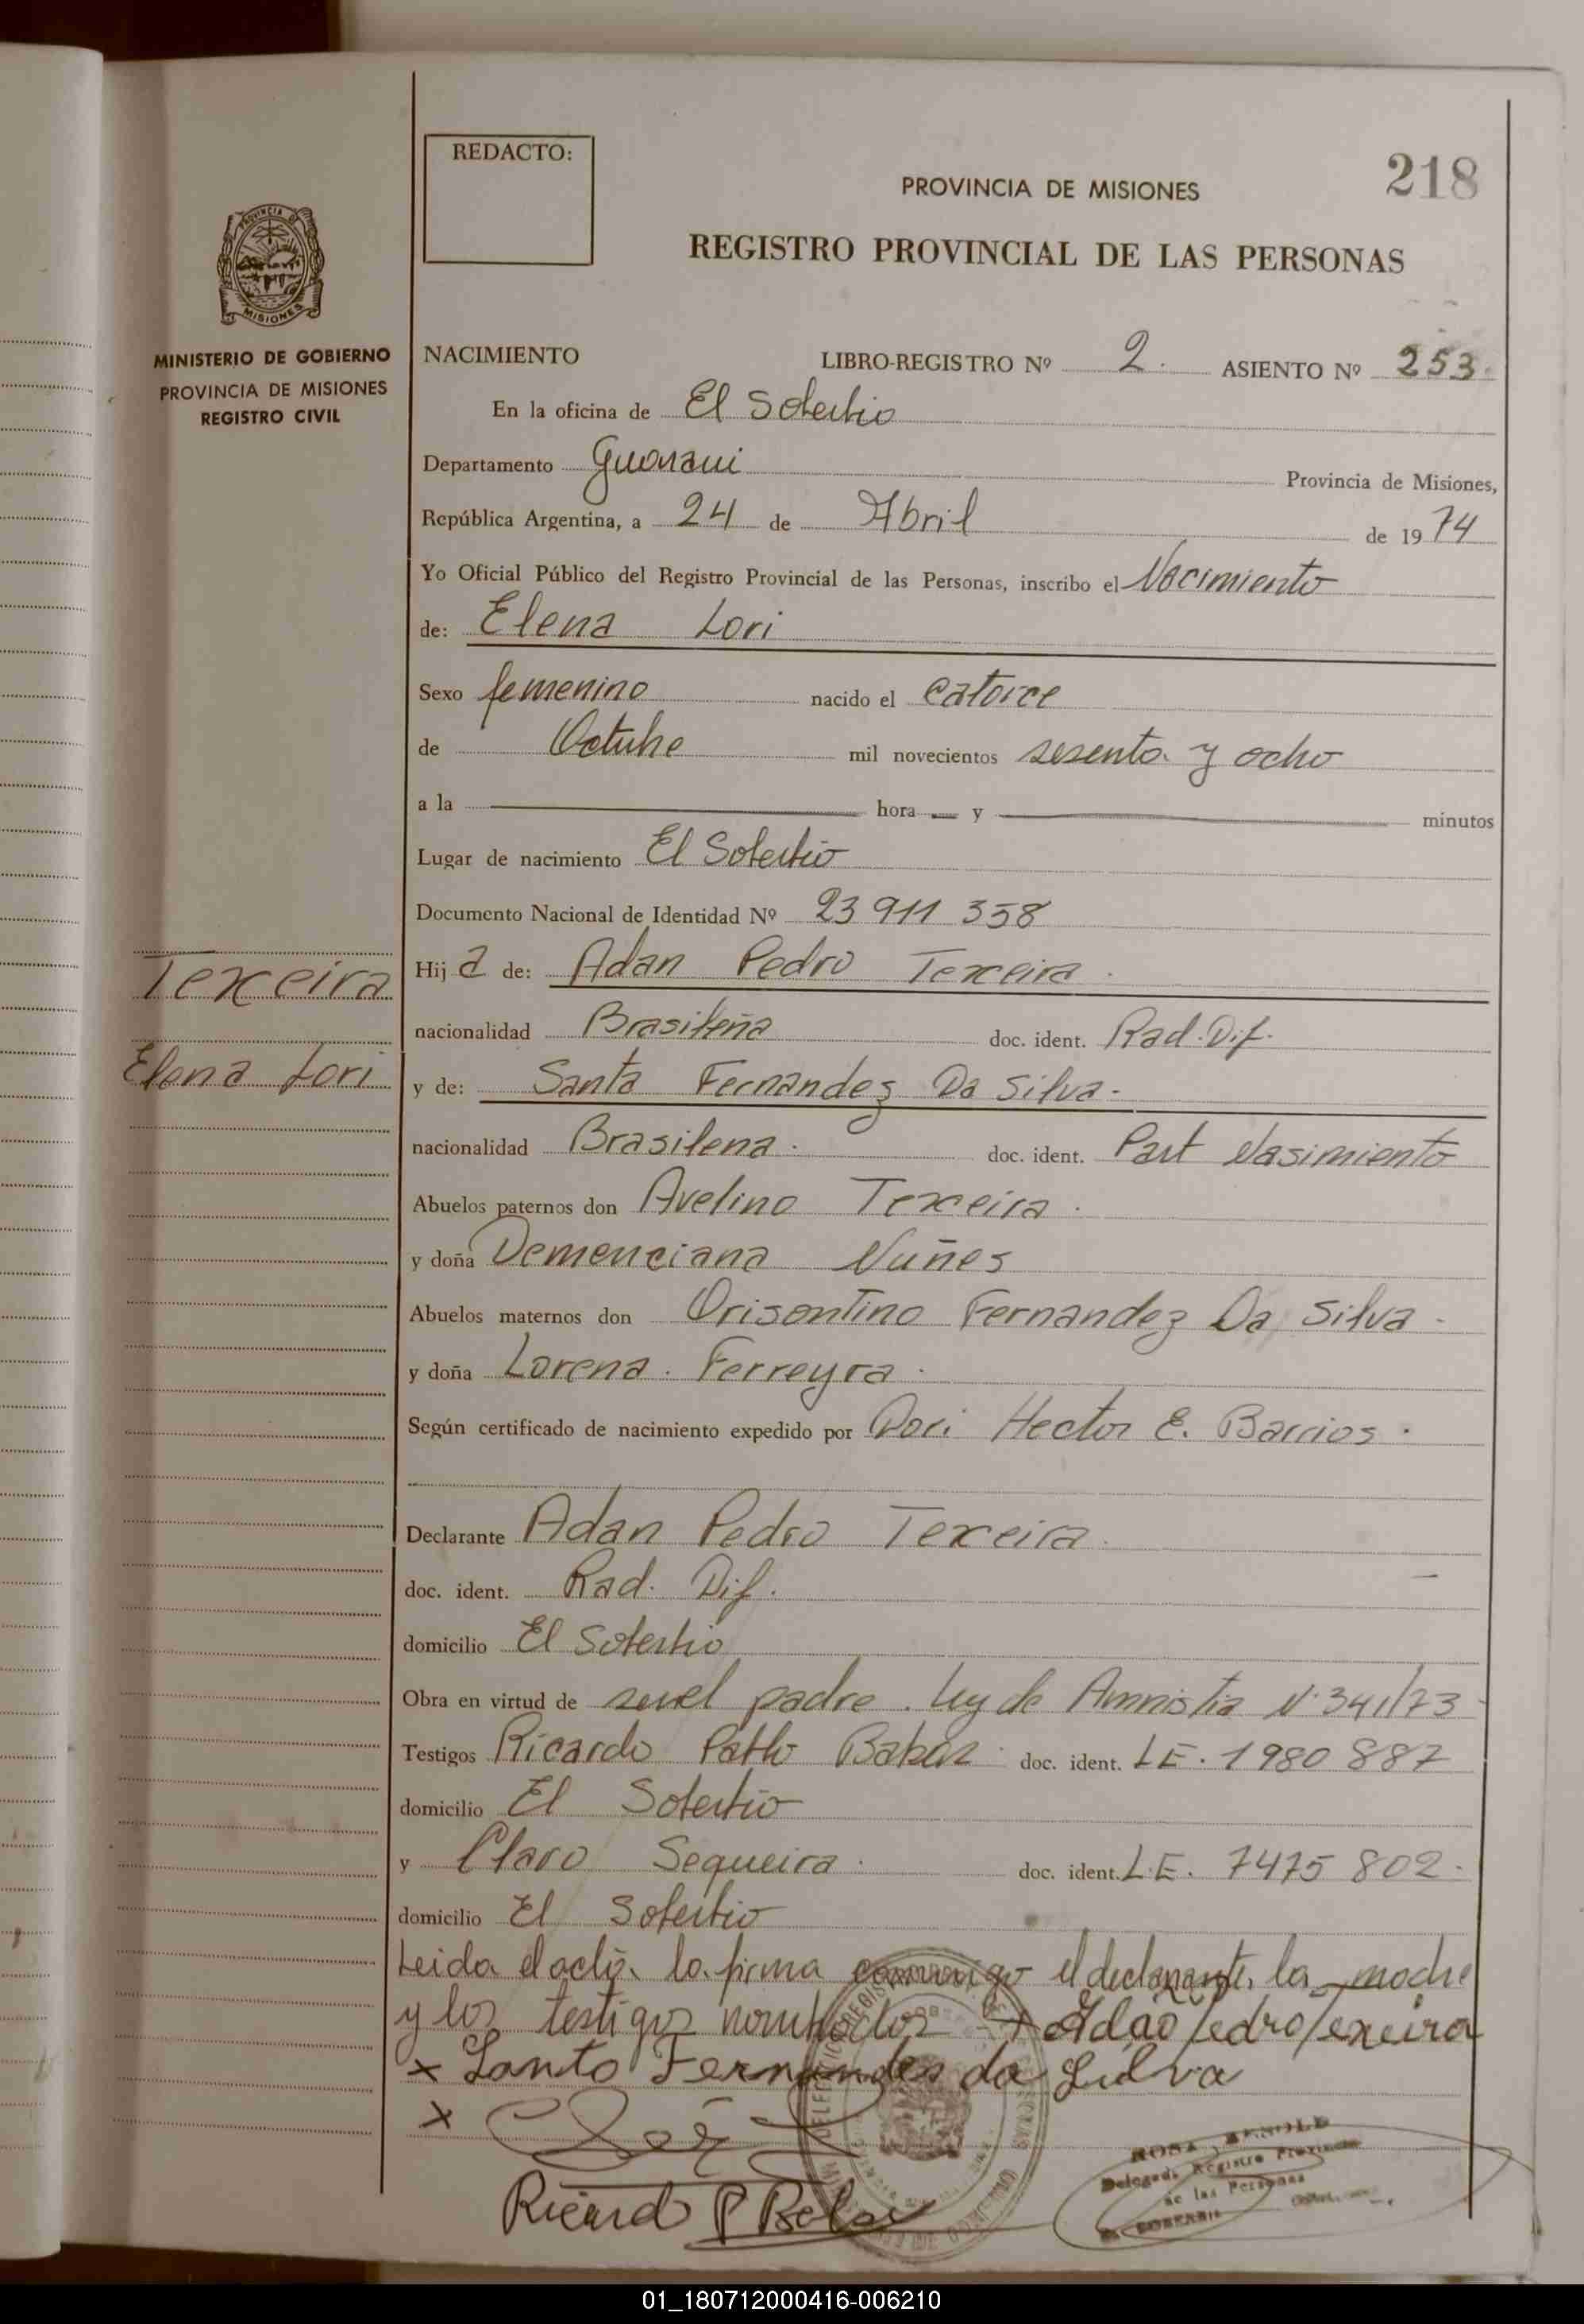 REDACTO:
218
PROVINCIA DE MISIONES
REGISTRO PROVINCIAL DE LAS PERSONAS
PROVINCIA DE
MISIONES
MINISTERIO DE GOBIERNO
PROVINCIA DE MISIONES
REGISTRO CIVIL
NACIMIENTO LIBRO-REGISTRO Nº 2. ASIENTO Nº 253.
En la oficina de El Soberbio
Departamento Guarani Provincia de Misiones,
República Argentina, a 24 de Abril de 1974
Yo Oficial Público del Registro Provincial de las Personas, inscribo el Nacimiento
de: Elena Lori
Sexo femenino nacido el catorce
de Octubre mil novecientos sesenta y ocho
a la hora y minutos
Lugar de nacimiento El Soberbio
Documento Nacional de Identidad Nº 23 911 358
Texeira
Hija de: Adan Pedro Texeira.
nacionalidad Brasileña doc. ident. Rad. Dif.
Elena Lori
y de: Santa Fernandez Da Silva.-
nacionalidad Brasilena. doc. ident. Part Nasimiento
Abuelos paternos don Avelino Texeira.
y doña Demenciana Nuñes
Abuelos maternos don Orisontino Fernandez Da Silva-
y doña Lorena. Ferreyra.
Según certificado de nacimiento expedido por Hector E. Barrios.
Declarante Adan Pedro Texeira.
doc. ident. Rad. Dif.
domicilio El Soberbio
Obra en virtud de ser el padre. Ley de Amnistia N. 341/73
Testigos Ricardo Pablo doc. ident. L E. 1980 887
domicilio El Soberbio
y Claro Sequeira. doc. ident. L.E. 7475 802.
domicilio El Soberbio
Leida el acta. la firma conmigo el declarante, la madre
y los testigos nombrados + Adão Pedro Texeira
x Santo Fernandes da Silva
x
Ricard P
Registro Provincial
de las Personas
01_180712000416-006210